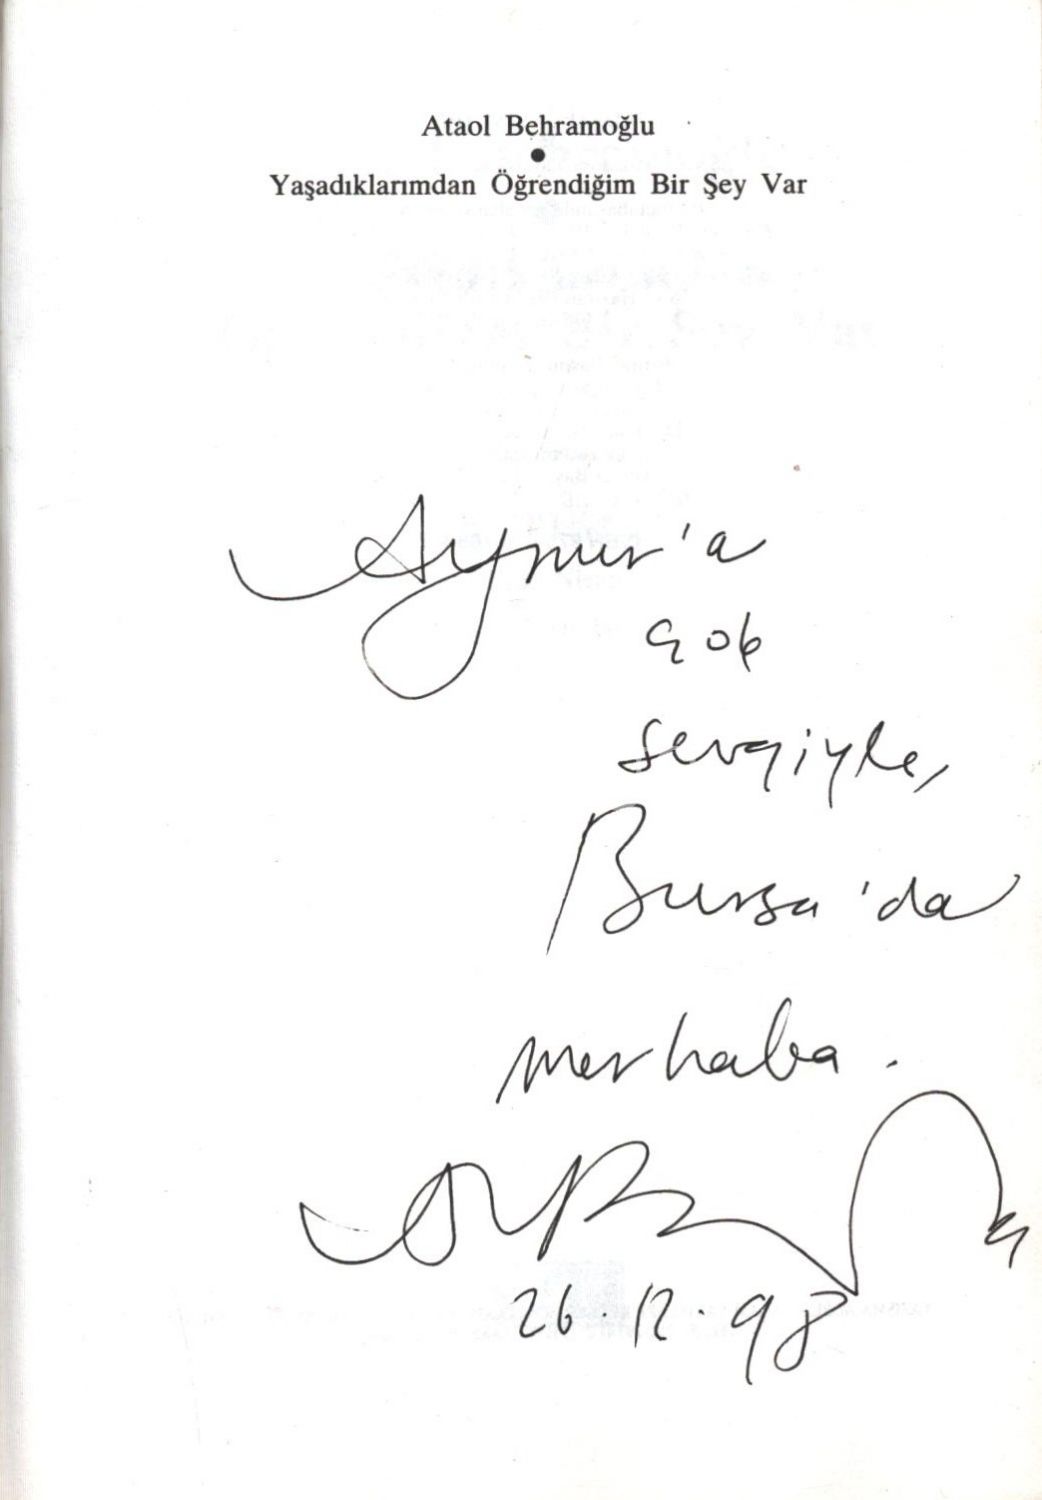 Ataol Behramoğlu
●
Yaşadıklarımdan Öğrendiğim Bir Şey Var
Aynur'a
çok
sevgiyle,
Bursa'da
merhaba.
26.12 98